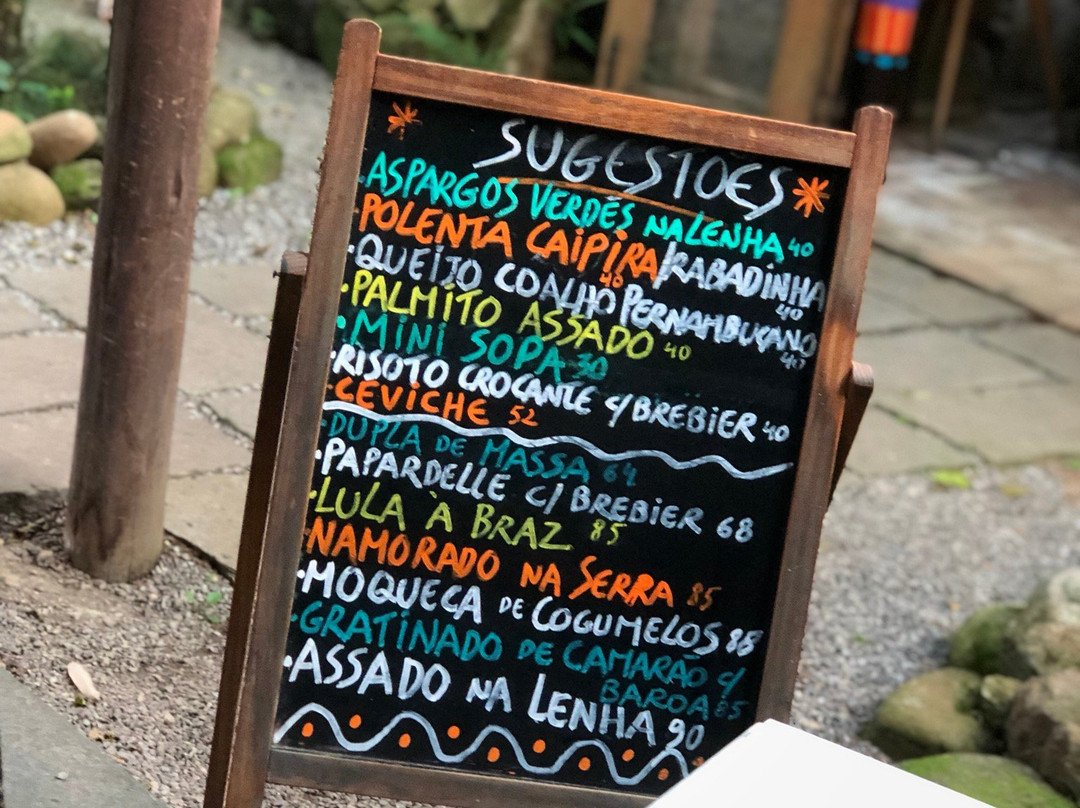 SUGESTÕES
·ASPARGOS VERDES NA LENHA 40
·POLENTA CAIPIRA/RABADINHA
40 40
·QUEIJO COALHO PERNAMBUCANO
40
·PALMITO ASSADO 40
·MINI SOPA 30
·RISOTO CROCANTE C/BREBIER 40
·CEVICHE 52
·DUPLA DE MASSA 64
·PAPARDELLE C/ BREBIER 68
·LULA À BRAZ 85
·NAMORADO NA SERRA 85
·MOQUECA DE COGUMELOS 88
·GRATINADO DE CAMARÃO C/
BAROA 85
·ASSADO NA LENHA 90